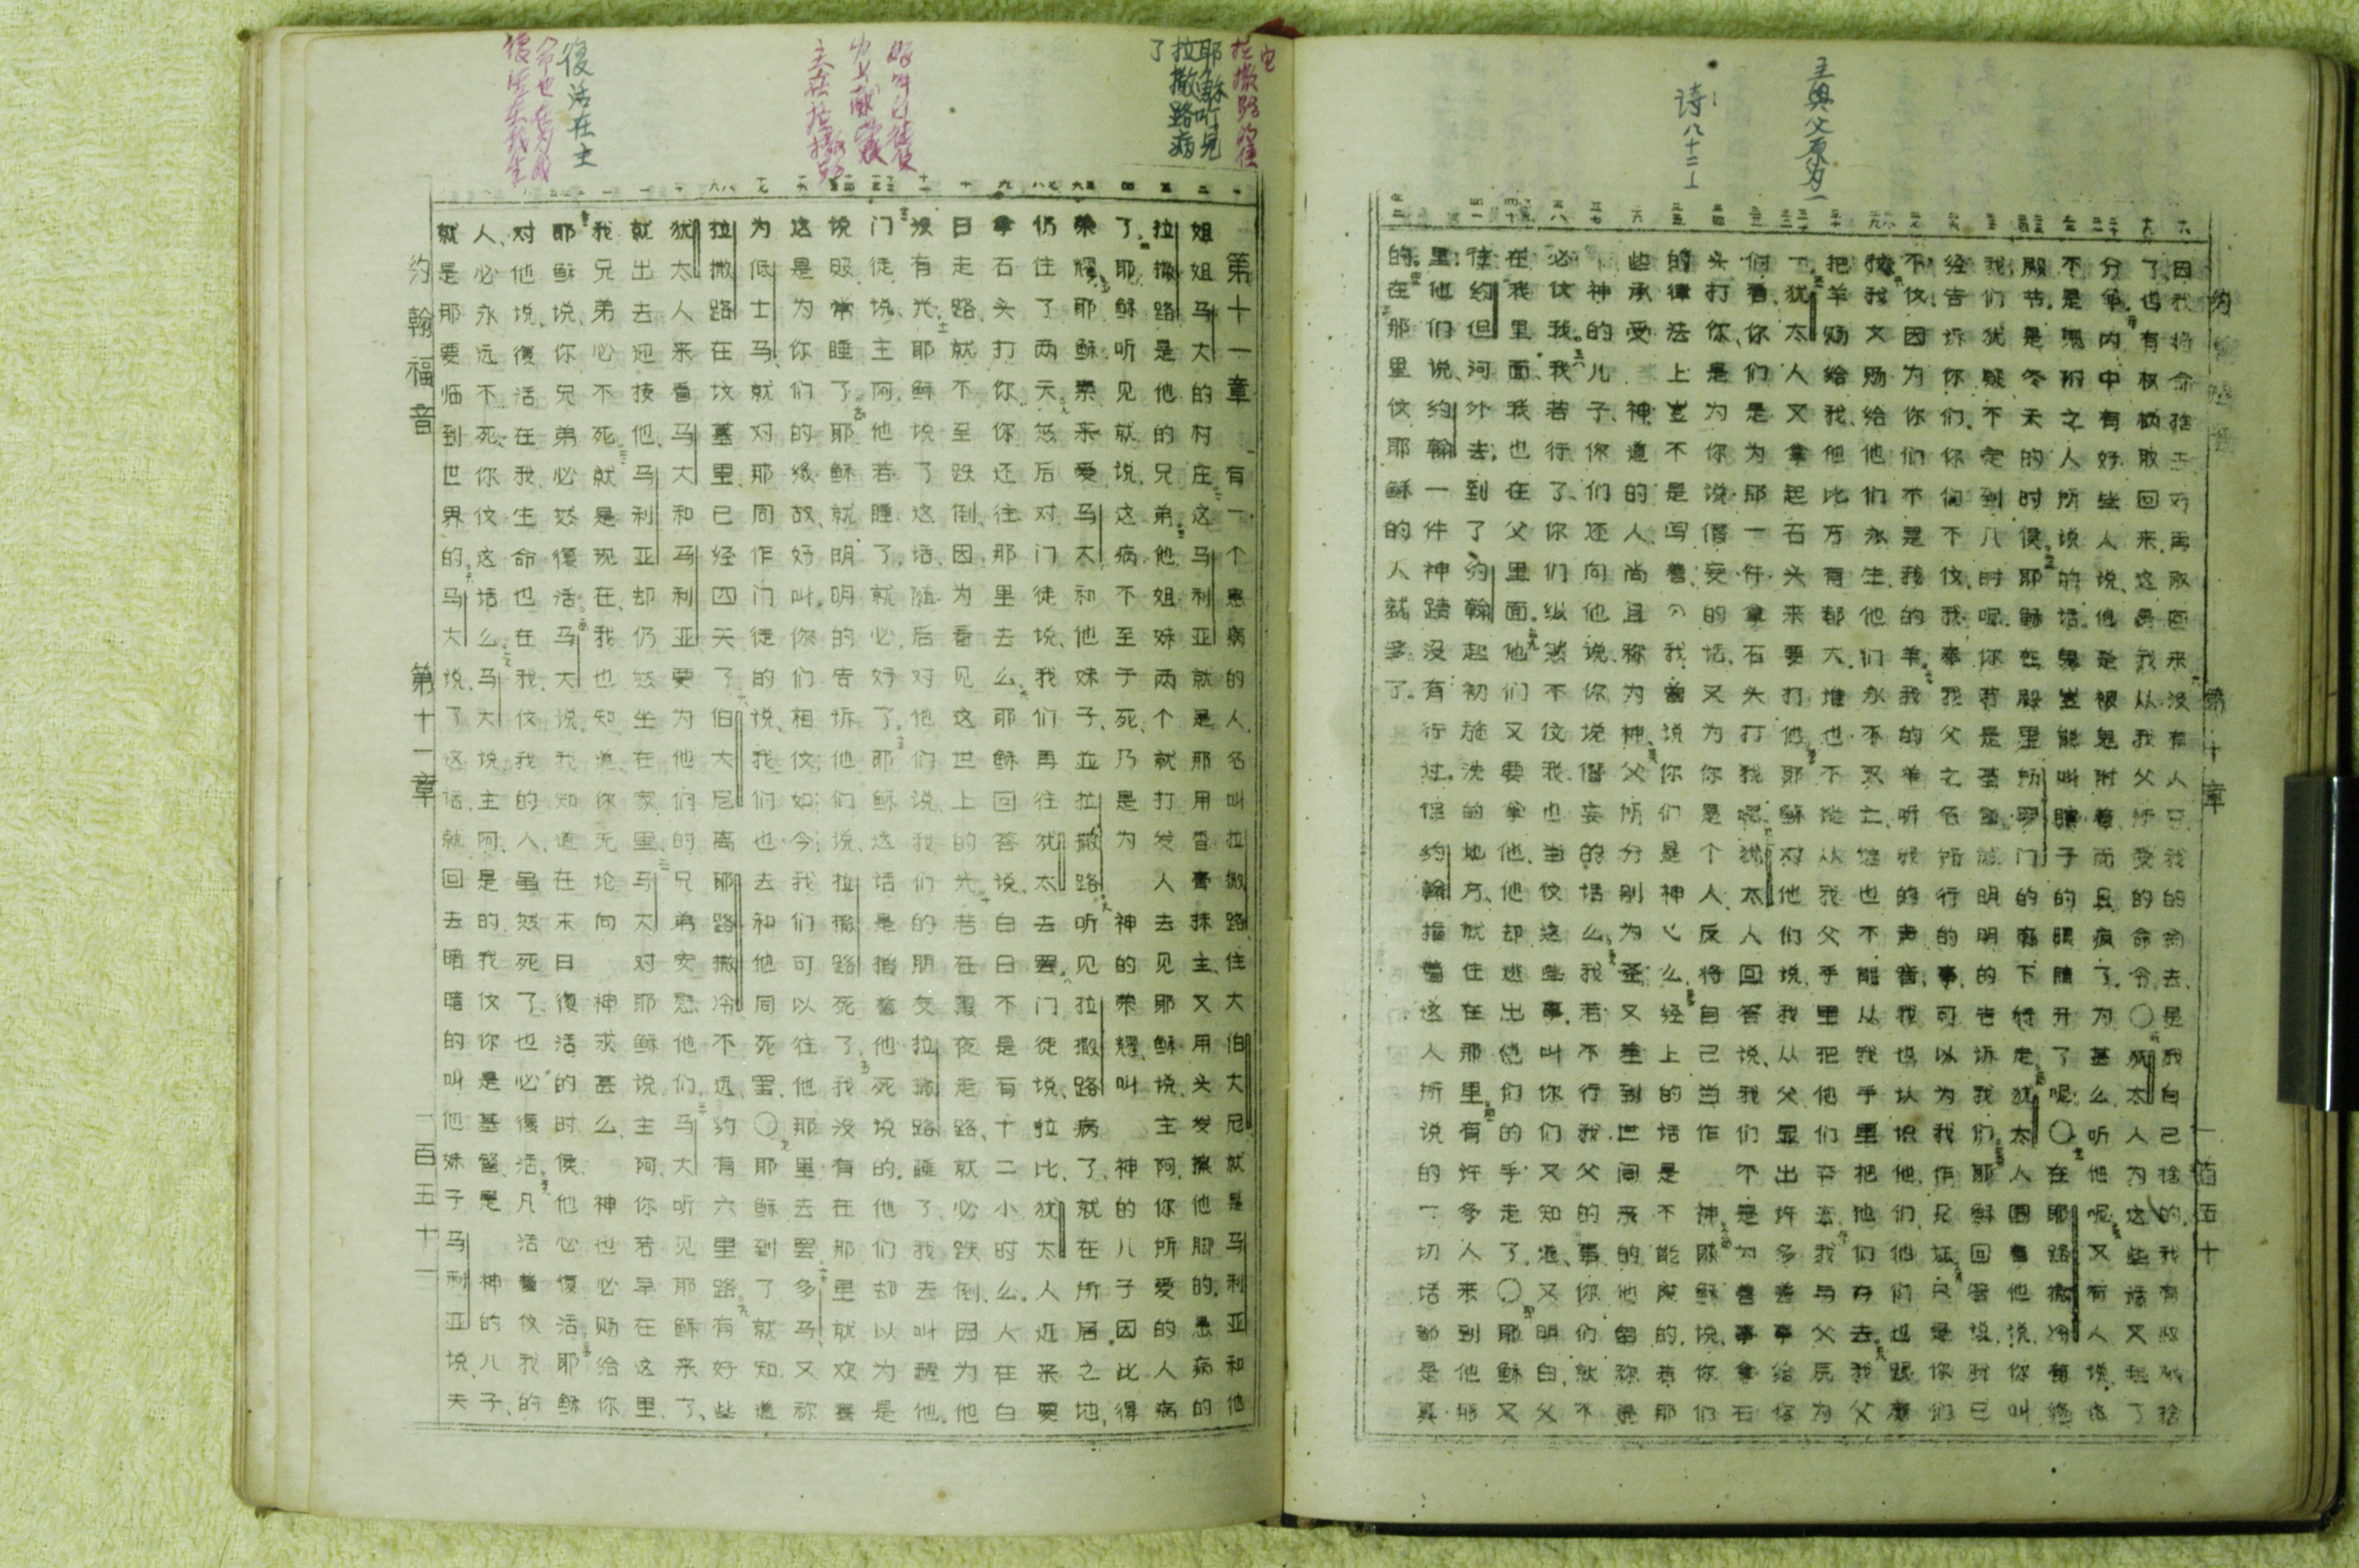 主与父原为一
诗八十二1
约翰福音 第十章 一百五十
因我将命舍去、好再取回来。没有人夺我的命去、是我自己舍的。我有权柄舍
了、也有权柄取回来、这是我从我父所受的命令〇犹太人为这些话又起了
分争。内中有好些人说、他是被鬼附着、而且疯了、为甚么听他呢。又有人说、这
不是鬼附之人所说的话。鬼岂能叫瞎子的眼睛开了呢〇在耶路撒冷有修
殿节。是冬天的时候。耶稣在殿里所罗门的廊下行走。犹太人围着他说、你叫
我们犹疑不定到几时呢、你若是基督、就明明的告诉我们。耶稣回答说、我已
经告诉你们、你们不信、我奉我父之名所行的事、可以为我作见证。只是你们
不信、因为你们不是我的羊。我的羊听我的声音、我也认识他们、他们也跟着
我。我又赐给他们永生、他们永不灭亡、谁也不能从我手里把他们夺去。我父
把羊赐给我、他比万有都大、谁也不能从我父手里把他们夺去。我与父原为
一。犹太人又拿起石头来要打他。耶稣对他们说、我从父显出许多善事给
你们看、你们是为那一件拿石头打我呢。犹太人回答说、我们不是为善事拿石
头打你、是为你说僭妄的话、又为你是个人、反将自己当作 神。耶稣说、你们
的律法上岂不是写着、我曾说你们是神么。经上的话是不能废的、若那
些承受 神道的人、尚且称为神、父所分别为圣、又差到世间来的、他自称是
神的儿子、你们还向他说、你说僭妄的话么。我若不行我父的事、你们就不
必信我。我若行了、你们纵然不信我、也当信这些事、叫你们又知道、又明白父
在我里面、我也在父里面。他们又要拿他、他却逃出他们的手走了〇耶稣又
往约但河外去、到了约翰起初施洗的地方、就住在那里。有许多人来到他那
里、他们说、约翰一件神迹没有行过、但约翰指着这人所说的一切话都是真
的。在那里信耶稣的人就多了。
耶稣听见
拉撒路病
了
復活在主
第十一章 有一个患病的人、名叫拉撒路、住在伯大尼、就是马利亚和他
姐姐马大的村庄。这马利亚就是那用香膏抹主、又用头发擦他脚的、患病的
拉撒路是他的兄弟。他姐妹两个就打发人去见耶稣说、主阿、你所爱的人病
了。耶稣听见就说、这病不至于死、乃是为 神的荣耀、叫 神的儿子因此得
荣耀。耶稣素来爱马大、和他妹子、并拉撒路。听见拉撒路病了、就在所居之地、
仍住了两天。然后对门徒说、我们再往犹太去罢。门徒说、拉比、犹太人近来要
拿石头打你、你还往那里去么。耶稣回答说、白日不是有十二小时么。人在白
日走路、就不至跌倒、因为看见这世上的光。若在黑夜走路、就必跌倒、因为他
没有光。耶稣说了这话、随后对他们说、我们的朋友拉撒路睡了、我去叫醒他。
门徒说、主阿、他若睡了、就必好了。耶稣这话是指着他死说的、他们却以为是
说照常睡了。耶稣就明明的告诉他们说、拉撒路死了。我没有在那里就欢喜
这是为你们的缘故、好叫你们相信、如今我们可以往他那里去罢。多马又称
为低土马、就对那同作门徒的说、我们也去和他同死罢〇耶稣到了、就知道
拉撒路在坟墓里、已经四天了。伯大尼离耶路撒冷不远、约有六里路。有好些
犹太人来看马大和马利亚、要为他们的兄弟安慰他们。马大听见耶稣来了、
就出去迎接他、马利亚却仍然坐在家里。马大对耶稣说、主阿、你若早在这里、
我兄弟必不死。就是现在、我也知道、你无论向 神求甚么、 神也必赐给你。
耶稣说、你兄弟必然復活。马大说、我知道在末日復活的时候、他必復活。耶稣
对他说、復活在我、生命也在我、信我的人、虽然死了、也必復活。凡活着信我的
人、必永远不死、你信这话么。马大说、主阿、是的、我信你是基督、是 神的儿子、
就是那要临到世界的。马大说了这话、就回去暗暗的叫他妹子马利亚说、夫
约翰福音 第十一章 一百五十一